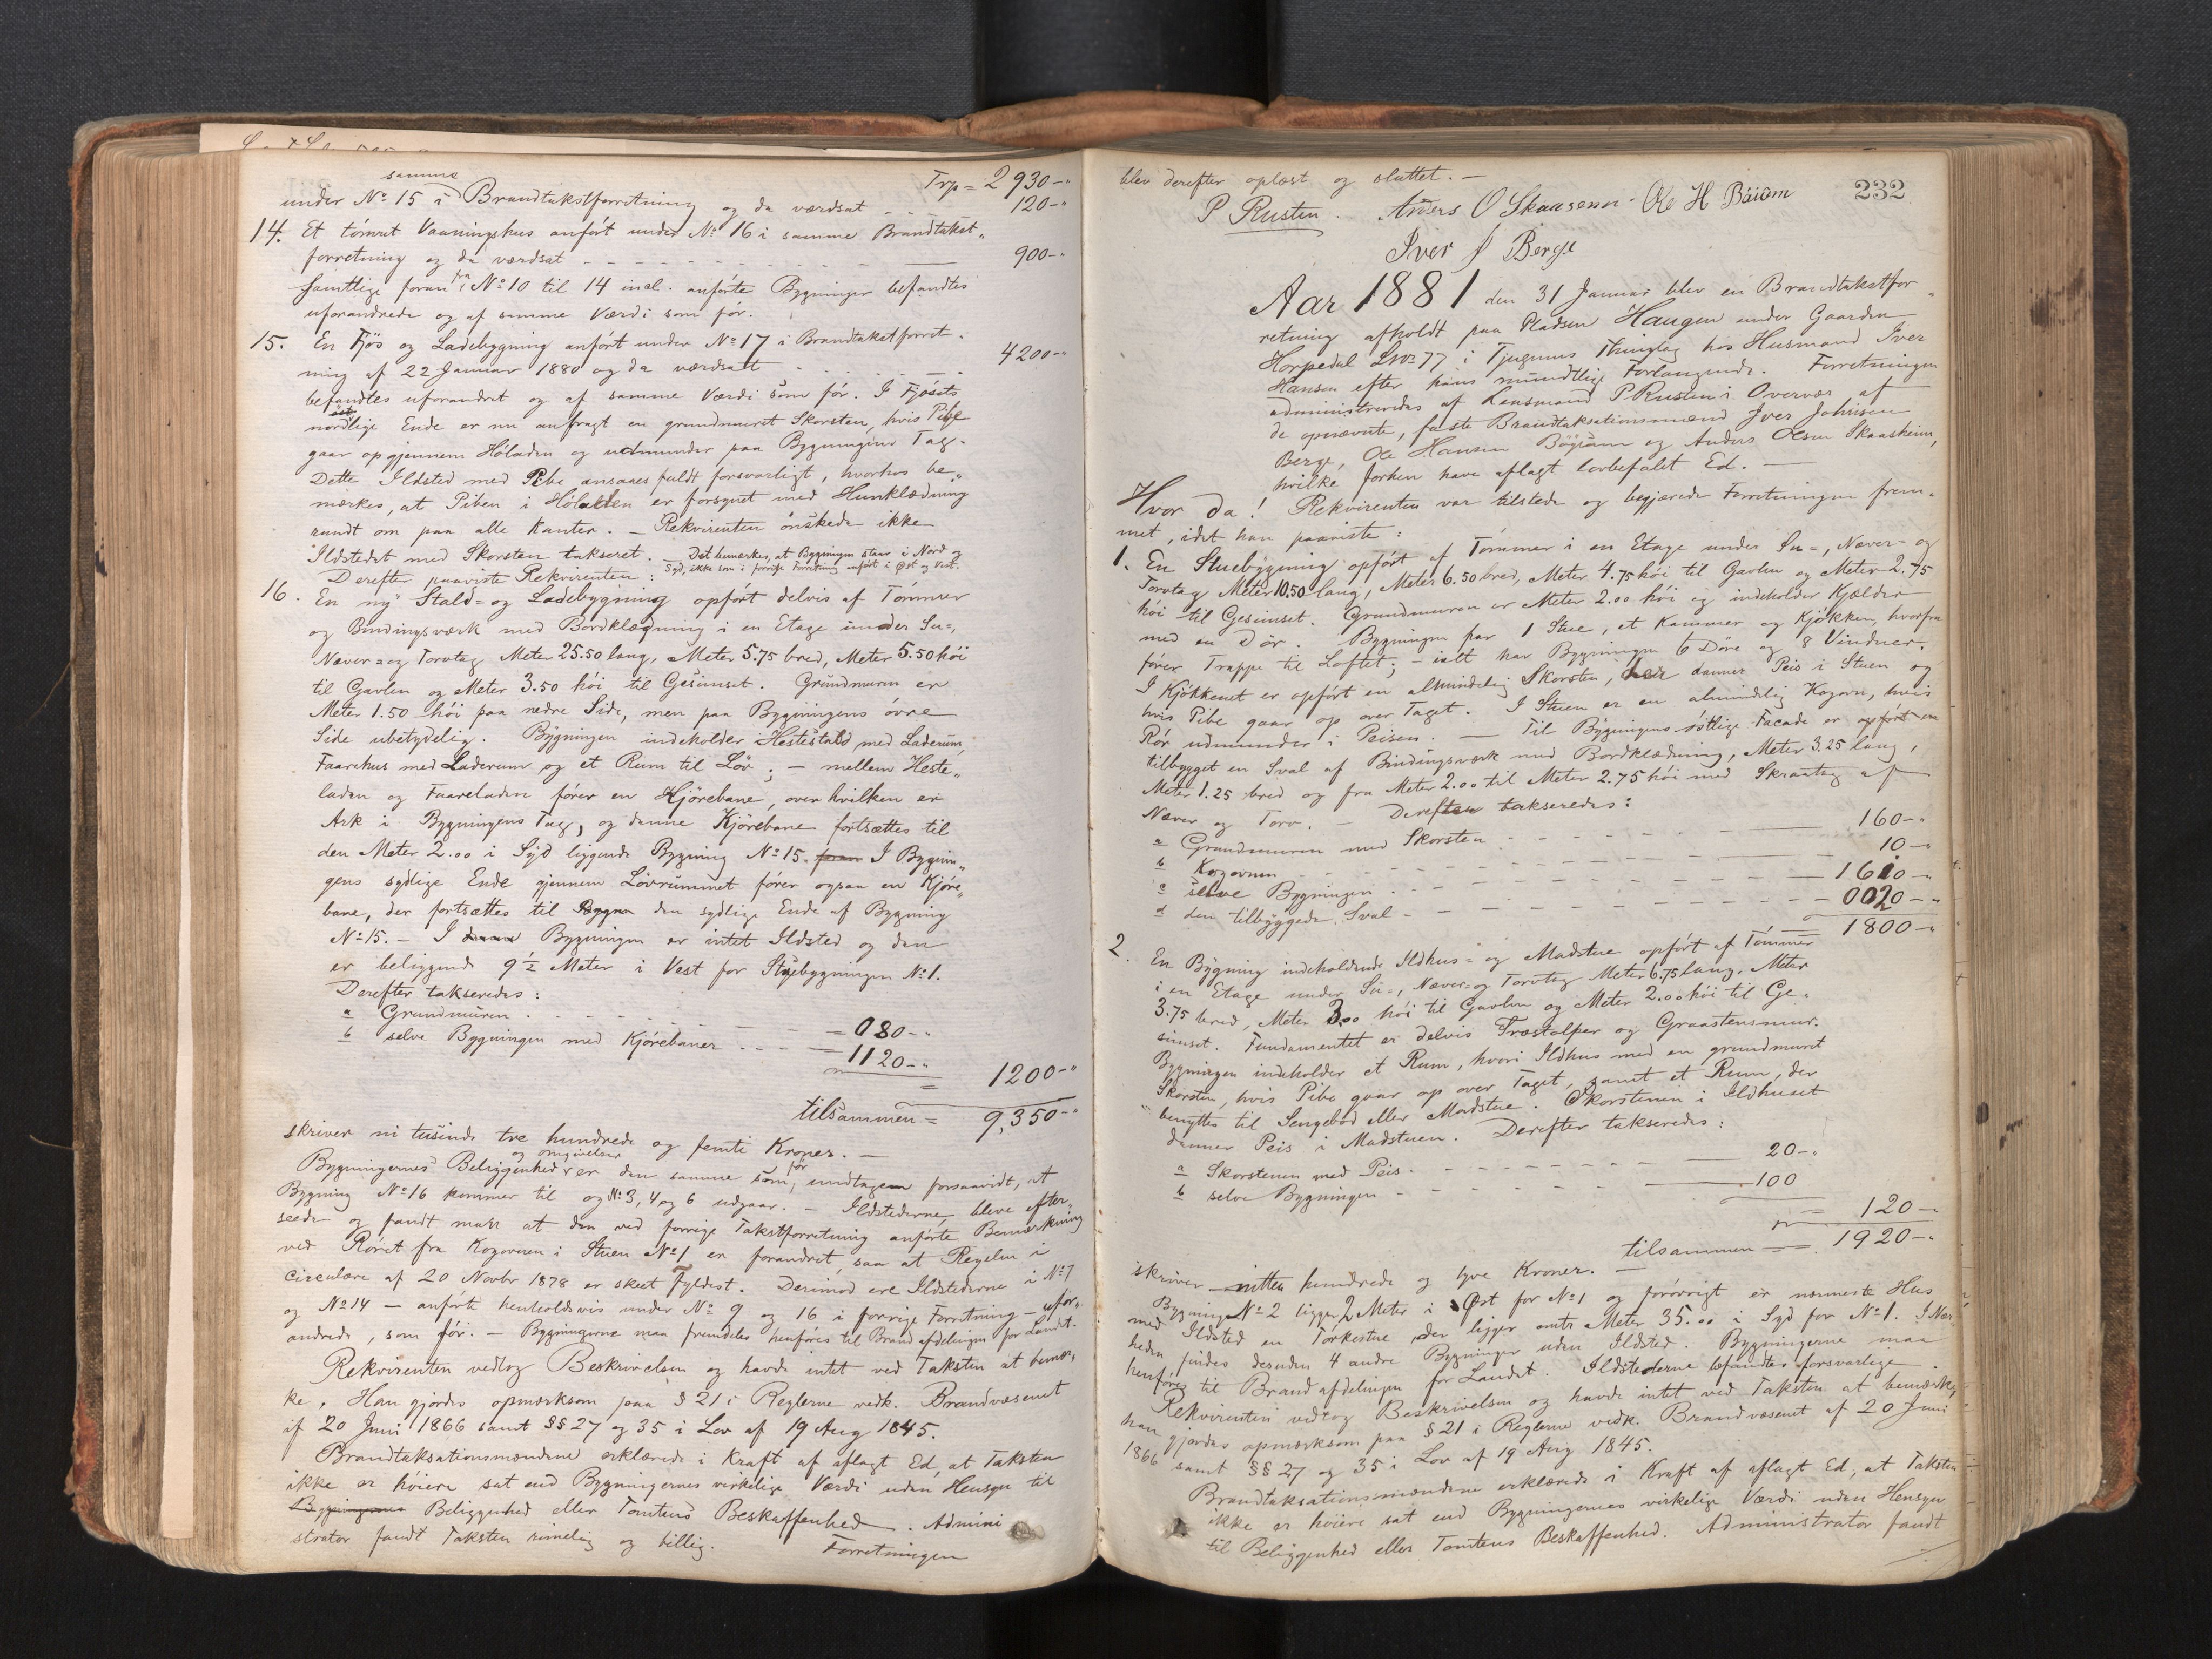 samme Trp = 2930-"
under No 15 i Brandtakstforretning og da værdsat - - - 120-"
14. Et tömret Vaaningshus anfört under No 16 i samme Brandtakst„
forretning og da værdsat - - - 900-"
Samtlige foran fra No 10 til 14 incl. anförte Bygninger befandtes
uforandrede og af samme Værdi som för.
15. En Fjös og Ladebygning anfört under No 17 i Brandtakstforret-
ning af 22 Januar 1880 og da værdsat - - - 4200-"
befandtes uforandret og af samme Værdi som för. I Fjösets
nordlige Ende er nu anbragt en grundmuret Skorsten, hvis Pibe
gaar opgjennem Höladen og udmunder paa Bygningens Tag.
Dette Ildsted med Pibe ansaaes fuldt forsvarligt, hvorhos be„
mærkes, at Piben i Höladen er forsynet med Hunklædning
rundt om paa alle Kanter. — Rekvirenten önskede ikke
Ildstedet med Skorsten takseret. — Det bemærkes, at Bygningen staar i Nord og
Syd, ikke som i forrige Forretning anfört i Öst og Vest.
Derefter paaviste Rekvirenten:
16. En ny Stald- og Ladebygning opfört delvis af Tömmer
og Bindingsværk med Bordklædning i en Etage under Su-,
Næver- og Torvtag Meter 25.50 lang, Meter 5.75 bred, Meter 5.50 höi
til Gavlen og Meter 3.50 höi til Gesimset. Grundmuren er
Meter 1.50 höi paa nedre Side, men paa Bygningens övre
Side ubetydelig. Bygningen indeholder Hestestald med Laderum,
Faarehus med Laderum og et Rum til Löv; — mellem Heste„
laden og Faareladen förer en Kjörebane, over hvilken er
Ark i Bygningens Tag, og denne Kjörebane fortsættes til
den Meter 2.00 i Syd liggende Bygning No 15. foran I Bygnin„
gens sydlige Ende gjennem Lövrummet förer ogsaa en Kjöre„
bane, der fortsættes til Bygn den sydlige Ende af Bygning
No 15. — I denne Bygningen er intet Ildsted og den
er beliggende 9½ Meter i Vest for Stuebygningen No 1.
Derefter takseredes:
a Grundmuren - - - = 080-"
b selve Bygningen med Kjörebaner - - - 1120-"
= 1200-"
tilsammen = 9,350-"
skriver ni tusinde tre hundrede og femti Kroner. —
Bygningernes Beliggenhed og omgivelser er den samme som för, undtagen forsaavidt, at
Bygning No 16 kommer til og No 3, 4 og 6 udgaar. — Ildstederne bleve efter„
seede og fandt man at den ved forrige Takstforretning anförte Bemærkning
ved Röret fra Kogovnen i Stuen No 1 er forandret, saa at Regelen i
Circulære af 20 Novbr 1878 er skeet Fyldest. Derimod ere Ildstederne i No 7
og No 14 — anförte henholdsvis under No 9 og 16 i forrige Forretning — ufor„
andrede, som för. — Bygningerne maa fremdeles henföres til Brandafdelingen for Landet.
Rekvirenten vedtog Beskrivelsen og havde intet ved Taksten at bemær„
ke, Han gjordes opmærksom paa § 21 i Reglerne vedk. Brandvæsenet
af 20 Juni 1866 samt §§ 27 og 35 i Lov af 19 Aug 1845.
Brandtaksationsmændene erklærede i Kraft af aflagt Ed, at Taksten
ikke er höiere sat end Bygningernes virkelige Værdi uden Hensyn til
Bygningerne Beliggenhed eller Tomtens Beskaffenhed. Admini
strator fandt Taksten rimelig og billig. Forretningen
232
blev derefter oplæst og sluttet. —
P Rusten. Anders O Skaasemm. Ole H Böiom
Iver J Berge
Aar 1881 den 31 Januar blev en Brandtakstfor„
retning afholdt paa Pladsen Haugen under Gaarden
Horpedal LNo 77 i Tjugums Thinglag hos Husmand Iver
Hansen efter hans mundtlige Forlangende. Forretningen
administreredes af Lensmand P Rusten i Overvær af
de opnævnte, faste Brandtaksationsmænd Iver Johnsen
Berge, Ole Hansen Böyum og Anders Olsen Skaasheim,
hvilke forhen have aflagt lovbefalet Ed. —
Hvor da! Rekvirenten var tilstede og begjærede Forretningen frem„
met, idet han paaviste:
1. En Stuebygning opfört af Tömmer i en Etage under Su-, Næver- og
Torvtag Meter 10,50 lang, Meter 6.50 bred, Meter 4.75 höi til Gavlen og Meter 2.75
höi til Gesimset. Grundmuren er Meter 2.00 höi og indeholder Kjælder
med en Dör. Bygningen har 1 Stue, et Kammer og Kjökken, hvorfra
förer Trappe til Loftet; — ialt har Bygningen 6 Döre og 8 Vinduer.
I Kjökkenet er opfört en almindelig Skorsten, der danner Peis i Stuen og
hvis Pibe gaar op over Taget. I Stuen er en almindelig Kogovn, hvis
Rör udmunder i Peisen. — Til Bygningens östlige Facade er opfört en
tilbygget en Sval af Bindingsværk med Bordklædning, Meter 3.25 lang,
Meter 1.25 bred og fra Meter 2.00 til Meter 2.75 höi med Skraatag af
Næver og Torv. — Derefter takseredes:
a Grundmuren med Skorsten - - - 160-"
b Kogovnen - - - 10-"
c selve Bygningen - - - 1610-"
d den tilbyggede Sval - - - 0020-"
1800-"
2. En Bygning indeholdende Ildhus- og Madstue opfört af Tömmer
i en Etage under Su-, Næver- og Torvtag Meter 6.75 lang, Meter
3.75 bred, Meter 3.00 höi til Gavlen og Meter 2.00 höi til Ge„
simset. Fundamentet er delvis Træstolper og Graastensmur.
Bygningen indeholder et Rum, hvori Ildhus med en grundmuret
Skorsten, hvis Pibe gaar op over Taget, samt et Rum, der
benyttes til Sengebod eller Madstue. Skorstenen i Ildhuset
danner Peis i Madstuen. Derefter takseredes:
a Skorstenen med Peis - - - 20-"
b selve Bygningen - - - 100
= 120-"
tilsammen = 1920-"
skriver nitten hundrede og tyve Kroner. —
Bygning No 2 ligger 2 Meter i Öst for No 1 og forövrigt er nærmeste Hus
med Ildsted en Törkestue der ligger omtr Meter 35.00 i Syd for No 1. I Nær„
heden findes desuden 4 andre Bygninger uden Ildsted. Bygningerne maa
henföres til Brandafdelingen for Landet. Ildstederne befandtes forsvarlige.
Rekvirenten vedtog Beskrivelsen og havde intet ved Taksten at bemærke,
han gjordes opmærksom paa § 21 i Reglerne vedk. Brandvæsenet af 20 Juni
1866 samt §§ 27 og 35 i Lov af 19 Aug 1845.
Brandtaksationsmændene erklærede i Kraft af aflagt Ed, at Taksten
ikke er höiere sat end Bygningernes virkelige Værdi uden Hensyn
til Beliggenhed eller Tomtens Beskaffenhed. Administrator fandt